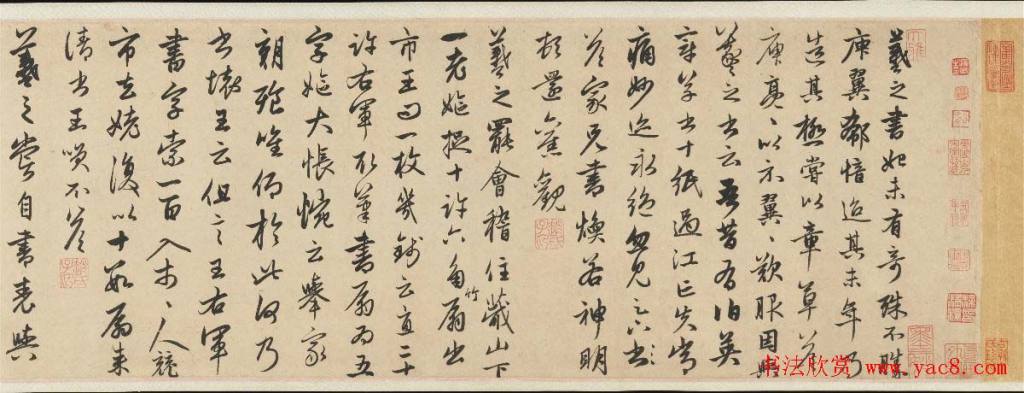 羲之書初未有奇殊不勝
庾翼郗愔迨其末年乃
造其極嘗以章草答
庾亮亮以示翼翼歎服因與
羲之書云吾昔有伯英
章草書十紙過江亡失常
痛妙迹永絕忽見足下書
答家兄書煥若神明
頓還舊觀
羲之罷會稽住蕺山下
一老嫗捉十許六角竹扇出
市王問一枚幾錢云直二十
許右軍取筆書扇為五
字嫗大悵惋云舉家
朝飧唯仰於此何乃
書壞王云但言王右軍
書字索一百入市市人競
市去姥復以十數扇來
請書王笑不答
羲之嘗自書表與
书法欣赏
www.yac8.com